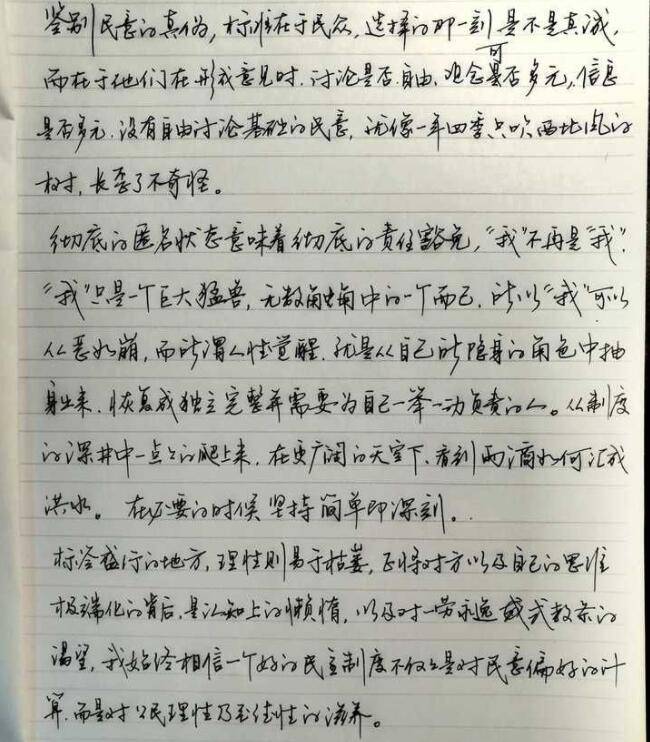 鉴别民意的真伪,标准在于民众,选择的那一刻是不是真诚,
而在于他们在形成意见时.讨论是否自由、观念是否可多元,信息
是否多元.没有自由讨论基础的民意,就像一年四季只吹西北风的
树,长歪了不奇怪。
彻底的匿名状态意味着彻底的责任豁免,“我”不再是“我”.
“我”只是一个巨大猛兽,无数触角中的一个而已.所以“我”可以
从恶如崩,而所谓人性觉醒.就是从自己所隐身的角色中抽
身出来.恢复成独立完整并需要为自己一举一动负责的人。从制度
的深井中一点点的爬上来.在更广阔的天空下、看到雨滴如何汇成
洪水。在必要的时候坚持简单即深刻。
标签盛行的地方,理性则易于枯萎,正将对方以及自己的思维
极端化的背后,是认知上的懒惰,以及对一劳永逸成式教条的
渴望,我始终相信一个好的民主制度不仅仅是对民意偏好的计
算.而是对公民理性乃至佳性的滋养。